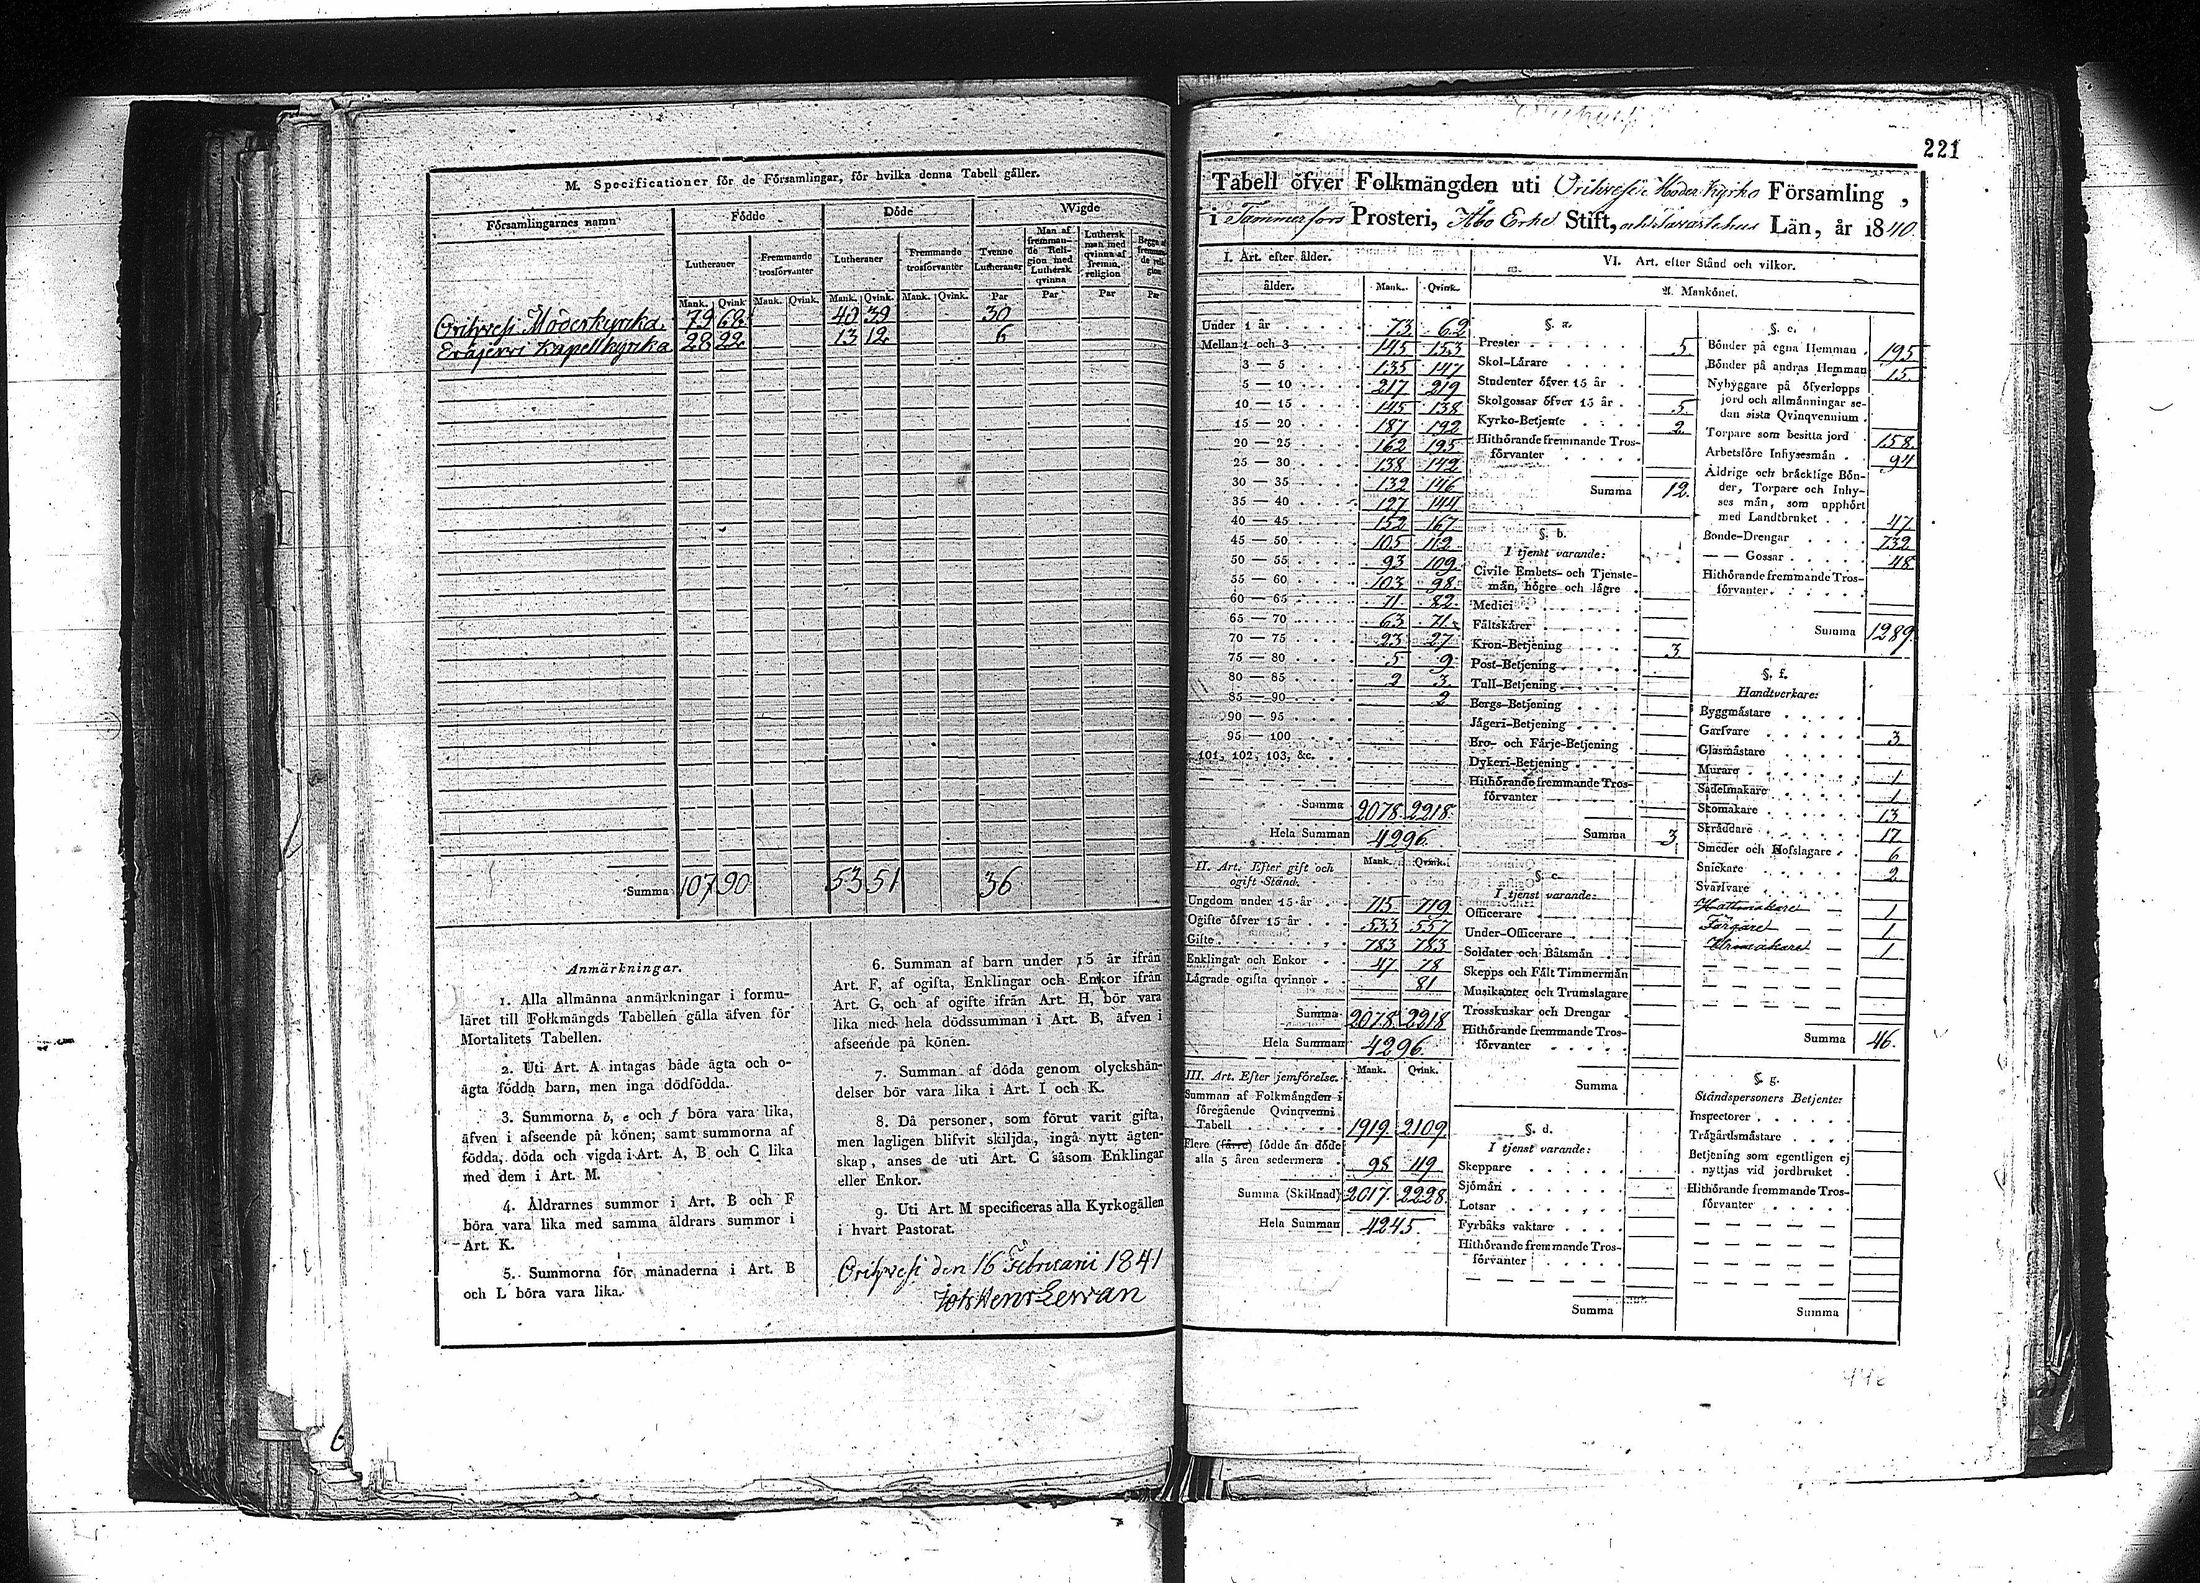 M. Specificationer för de Församlingar, för hvilka denna Tabell gäller.
Församlingarnes namn
Födde
Döde
Wigde
Lutheraner
Fremmande trosförvanter
Lutheraner
Fremmande trosförvanter
Tvenne Lutheraner
Man af fremmande Religion med Luthersk qvinna
Luthersk man med qvinna af fremm. religion
Mank. Qvink. Mank. Qvink. Mank. Qvink. Mank. Qvink. Par Par Par Par
Orihvesi Moderkyrka 79 68 40 39 30
Eräjervi Kapellkyrka 28 22 13 12 6
Summa 107 90 53 51 36
Anmärkningar.
1. Alla allmänna anmärkningar i formu-
läret till Folkmängds Tabellen gälla äfven för
Mortalitets Tabellen.
2. Uti Art. A intagas både ägta och o-
ägta födda barn, men inga dödfödda.
3. Summorna b, e och f böra vara lika,
äfven i afseende på könen; samt summorna af
födda, döda och vigda i Art. A, B och C lika
med dem i Art. M.
4. Åldrarnes summor i Art. B och F
böra vara lika med samma åldrars summor i
Art. K.
5. Summorna för månaderna i Art. B
och L böra vara lika.
6. Summan af barn under 15 år ifrån
Art. F, af ogifta, Enklingar och Enkor ifrån
Art. G, och af ogifte ifrån Art. H, bör vara
lika med hela dödssumman i Art. B, äfven i
afseende på könen.
7. Summan af döda genom olyckshän-
delser bör vara lika i Art. I och K.
8. Då personer, som förut varit gifta,
men lagligen blifvit skiljda, ingå nytt ägten-
skap, anses de uti Art. C såsom Enklingar
eller Enkor.
9. Uti Art. M specificeras alla Kyrkogällen
i hvart Pastorat.
Orihvesi den 16 Februarii 1841
Joh Henr Lewan
6
221
Tabell öfver Folkmängden uti Orihvesi Moder Kyrko Församling,
i Tammerfors Prosteri, Åbo Erke Stift, och Tavastehus Län, år 1840.
I. Art. efter ålder.
ålder. Mank. Qvink.
Under 1 år 73 62
Mellan 1 och 3 145 153
3 — 5 135 147
5 — 10 217 219
10 — 15 145 138
15 — 20 187 192
20 — 25 162 195
25 — 30 138 142
30 — 35 132 146
35 — 40 127 144
40 — 45 152 167
45 — 50 105 112
50 — 55 93 109
55 — 60 103 98
60 — 65 71 82
65 — 70 63 71
70 — 75 23 27
75 — 80 5 9
80 — 85 2 3
85 — 90 2
90 — 95
95 — 100
101, 102, 103, &c.
Summa 2078 2218
Hela Summan 4296.
II. Art. Efter gift och
ogift Stånd. Mank. Qvink.
Ungdom under 15 år 715 719
Ogifte öfver 15 år 533 557
Gifte 783 783
Enklingar och Enkor 47 78
Lägrade ogifta qvinnor 81
Summa 2078 2218
Hela Summan 4296
III. Art. Efter jemförelse. Mank. Qvink.
Summan af Folkmängden i
föregående Qvinqvenni
Tabell 1919 2109
Flere (färre) födde än döde
alla 5 åren sedermera 98 119
Summa (Skillnad) 2017 2228
Hela Summan 4245.
VI. Art. efter Stånd och vilkor.
A. Mankönet.
§. a.
Prester 5
Skol-Lärare
Studenter öfver 15 år
Skolgossar öfver 15 år 5
Kyrko-Betjente 2
Hithörande fremmande Tros-
förvanter
Summa 12
§. b.
I tjenst varande:
Civile Embets- och Tjenste-
män, högre och lägre
Medici
Fältskärer
Kron-Betjening 3
Post-Betjening
Tull-Betjening
Bergs-Betjening
Jägeri-Betjening
Bro- och Färje-Betjening
Dykeri-Betjening
Hithörande fremmande Tros-
förvanter
Summa 3
§. c.
I tjenst varande:
Officerare
Under-Officerare
Soldater och Båtsmän
Skepps och Fält Timmermän
Musikanter och Trumslagare
Trosskuskar och Drengar
Hithörande fremmande Tros-
förvanter
Summa
§. d.
I tjenst varande:
Skeppare
Sjömän
Lotsar
Fyrbåks vaktare
Hithörande fremmande Tros-
förvanter
Summa
§. e.
Bönder på egna Hemman 195
Bönder på andras Hemman 15
Nybyggare på öfverlopps
jord och allmänningar se-
dan sista Qvinqvennium
Torpare som besitta jord 158
Arbetsföre Inhysesmän 94
Åldrige och bräcklige Bön-
der, Torpare och Inhy-
ses män, som upphört
med Landtbruket 47
Bonde-Drengar 732
— — Gossar 48
Hithörande fremmande Tros-
förvanter
Summa 1289
§. f.
Handtverkare:
Byggmästare
Garfvare 3
Glasmästare
Murare 1
Sadelmakare 1
Skomakare 13
Skräddare 17
Smeder och Hofslagare 6
Snickare 2
Svarfvare
Hattmakare — 1
Färgare — — 1
Urmakare — 1
Summa 46.
§. g.
Ståndspersoners Betjente:
Inspectorer
Trägårdsmästare
Betjening som egentligen ej
nyttjas vid jordbruket
Hithörande fremmande Tros-
förvanter
Summa